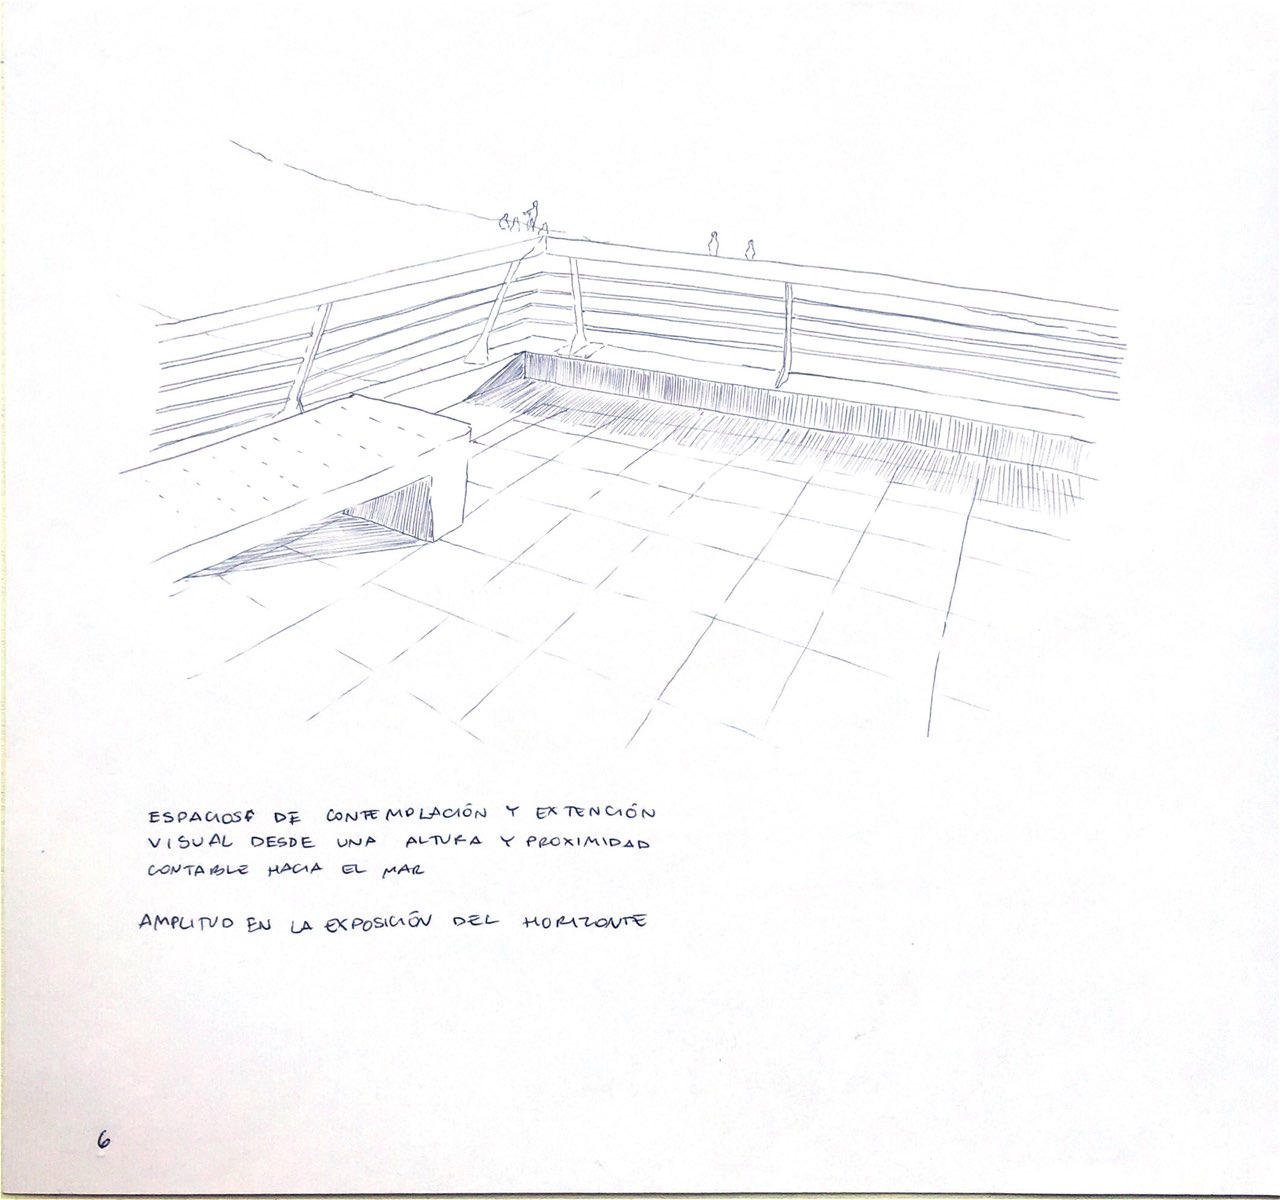 ESPACIOS DE CONTEMPLACIÓN Y EXTENCIÓN
VISUAL DESDE UNA ALTURA Y PROXIMIDAD
CONTABLE HACIA EL MAR
AMPLITUD EN LA EXPOSICIÓN DEL HORIZONTE
6